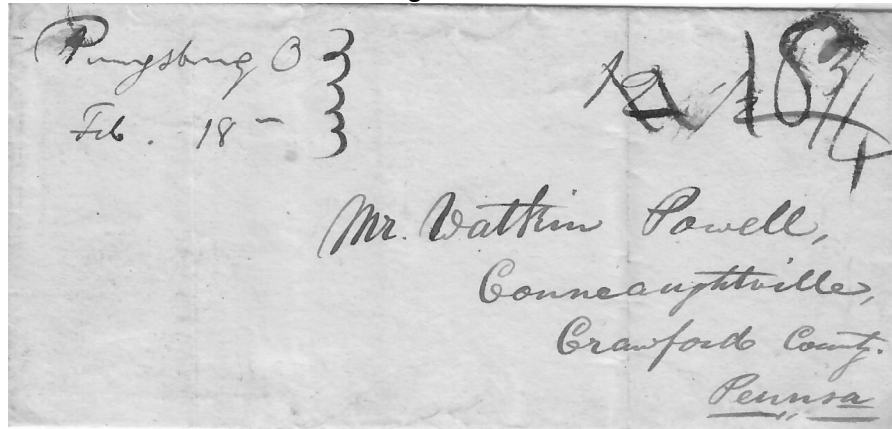 O
Feb. 18
12 1/2 18 3/4
Mr. Watkin Powell,
Conneaughtville,
Crawford County.
Pennsa